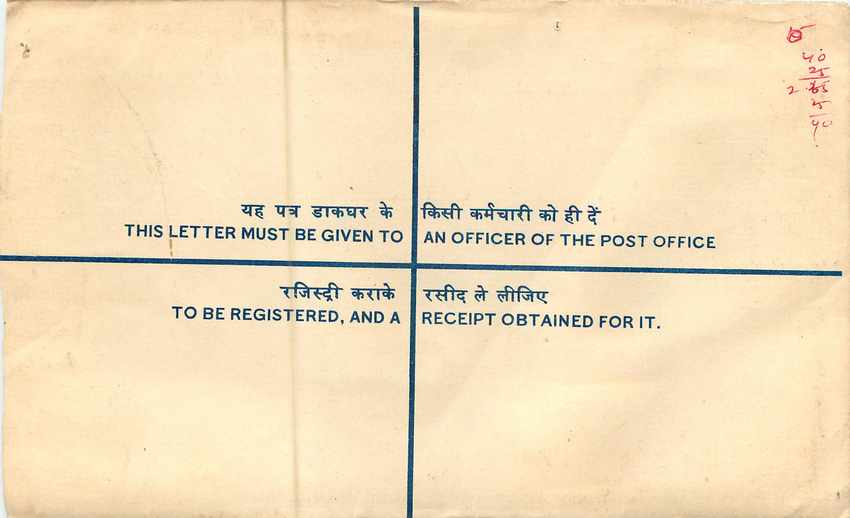 यह पत्र डाकघर के किसी कर्मचारी को ही दें
THIS LETTER MUST BE GIVEN TO AN OFFICER OF THE POST OFFICE
रजिस्ट्री कराके रसीद ले लीजिए
TO BE REGISTERED, AND A RECEIPT OBTAINED FOR IT.
40
25
40